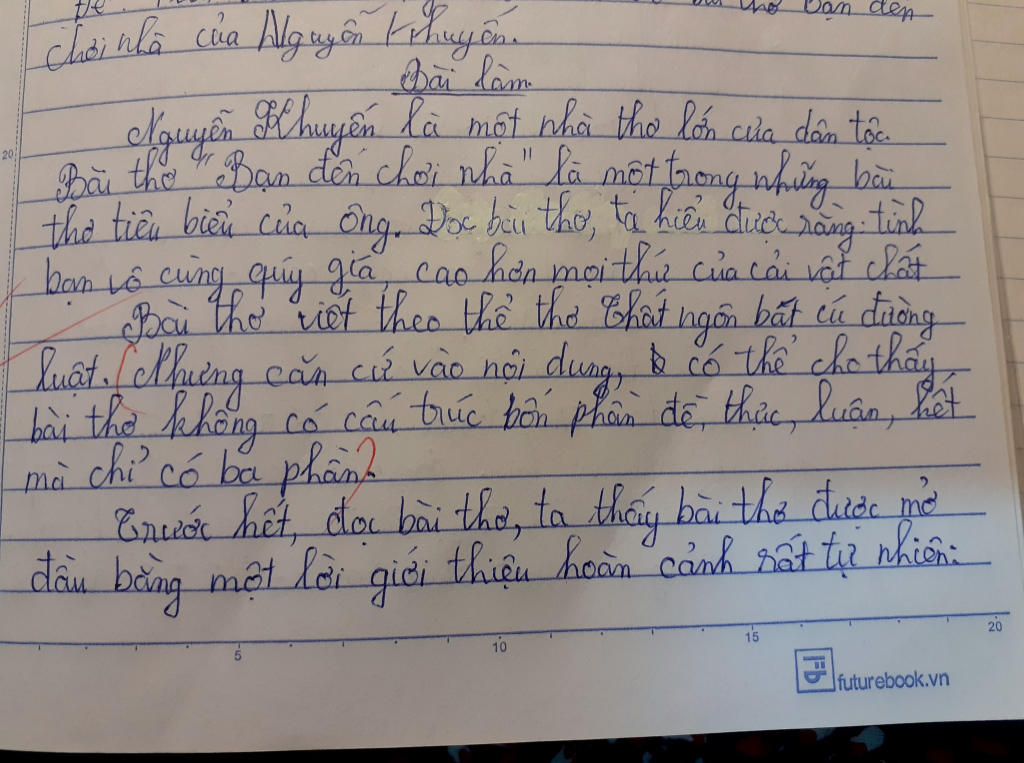 bạn đến
chơi nhà của Nguyễn Khuyến.
Bài làm.
Nguyễn Khuyến là một nhà thơ lớn của dân tộc.
20
Bài thơ "Bạn đến chơi nhà" là một trong những bài
thơ tiêu biểu của ông. Đọc bài thơ, ta hiểu được rằng: tình
bạn vô cùng quý giá, cao hơn mọi thứ của cải vật chất
Bài thơ viết theo thể thơ Thất ngôn bát cú đường
luật. (Nhưng căn cứ vào nội dung, có thể cho thấy
bài thơ không có cấu trúc bốn phần đề, thực, luận, kết
mà chỉ có ba phần?
Trước hết, đọc bài thơ, ta thấy bài thơ được mở
đầu bằng một lời giới thiệu hoàn cảnh rất tự nhiên:
5 10 15 20
futurebook.vn